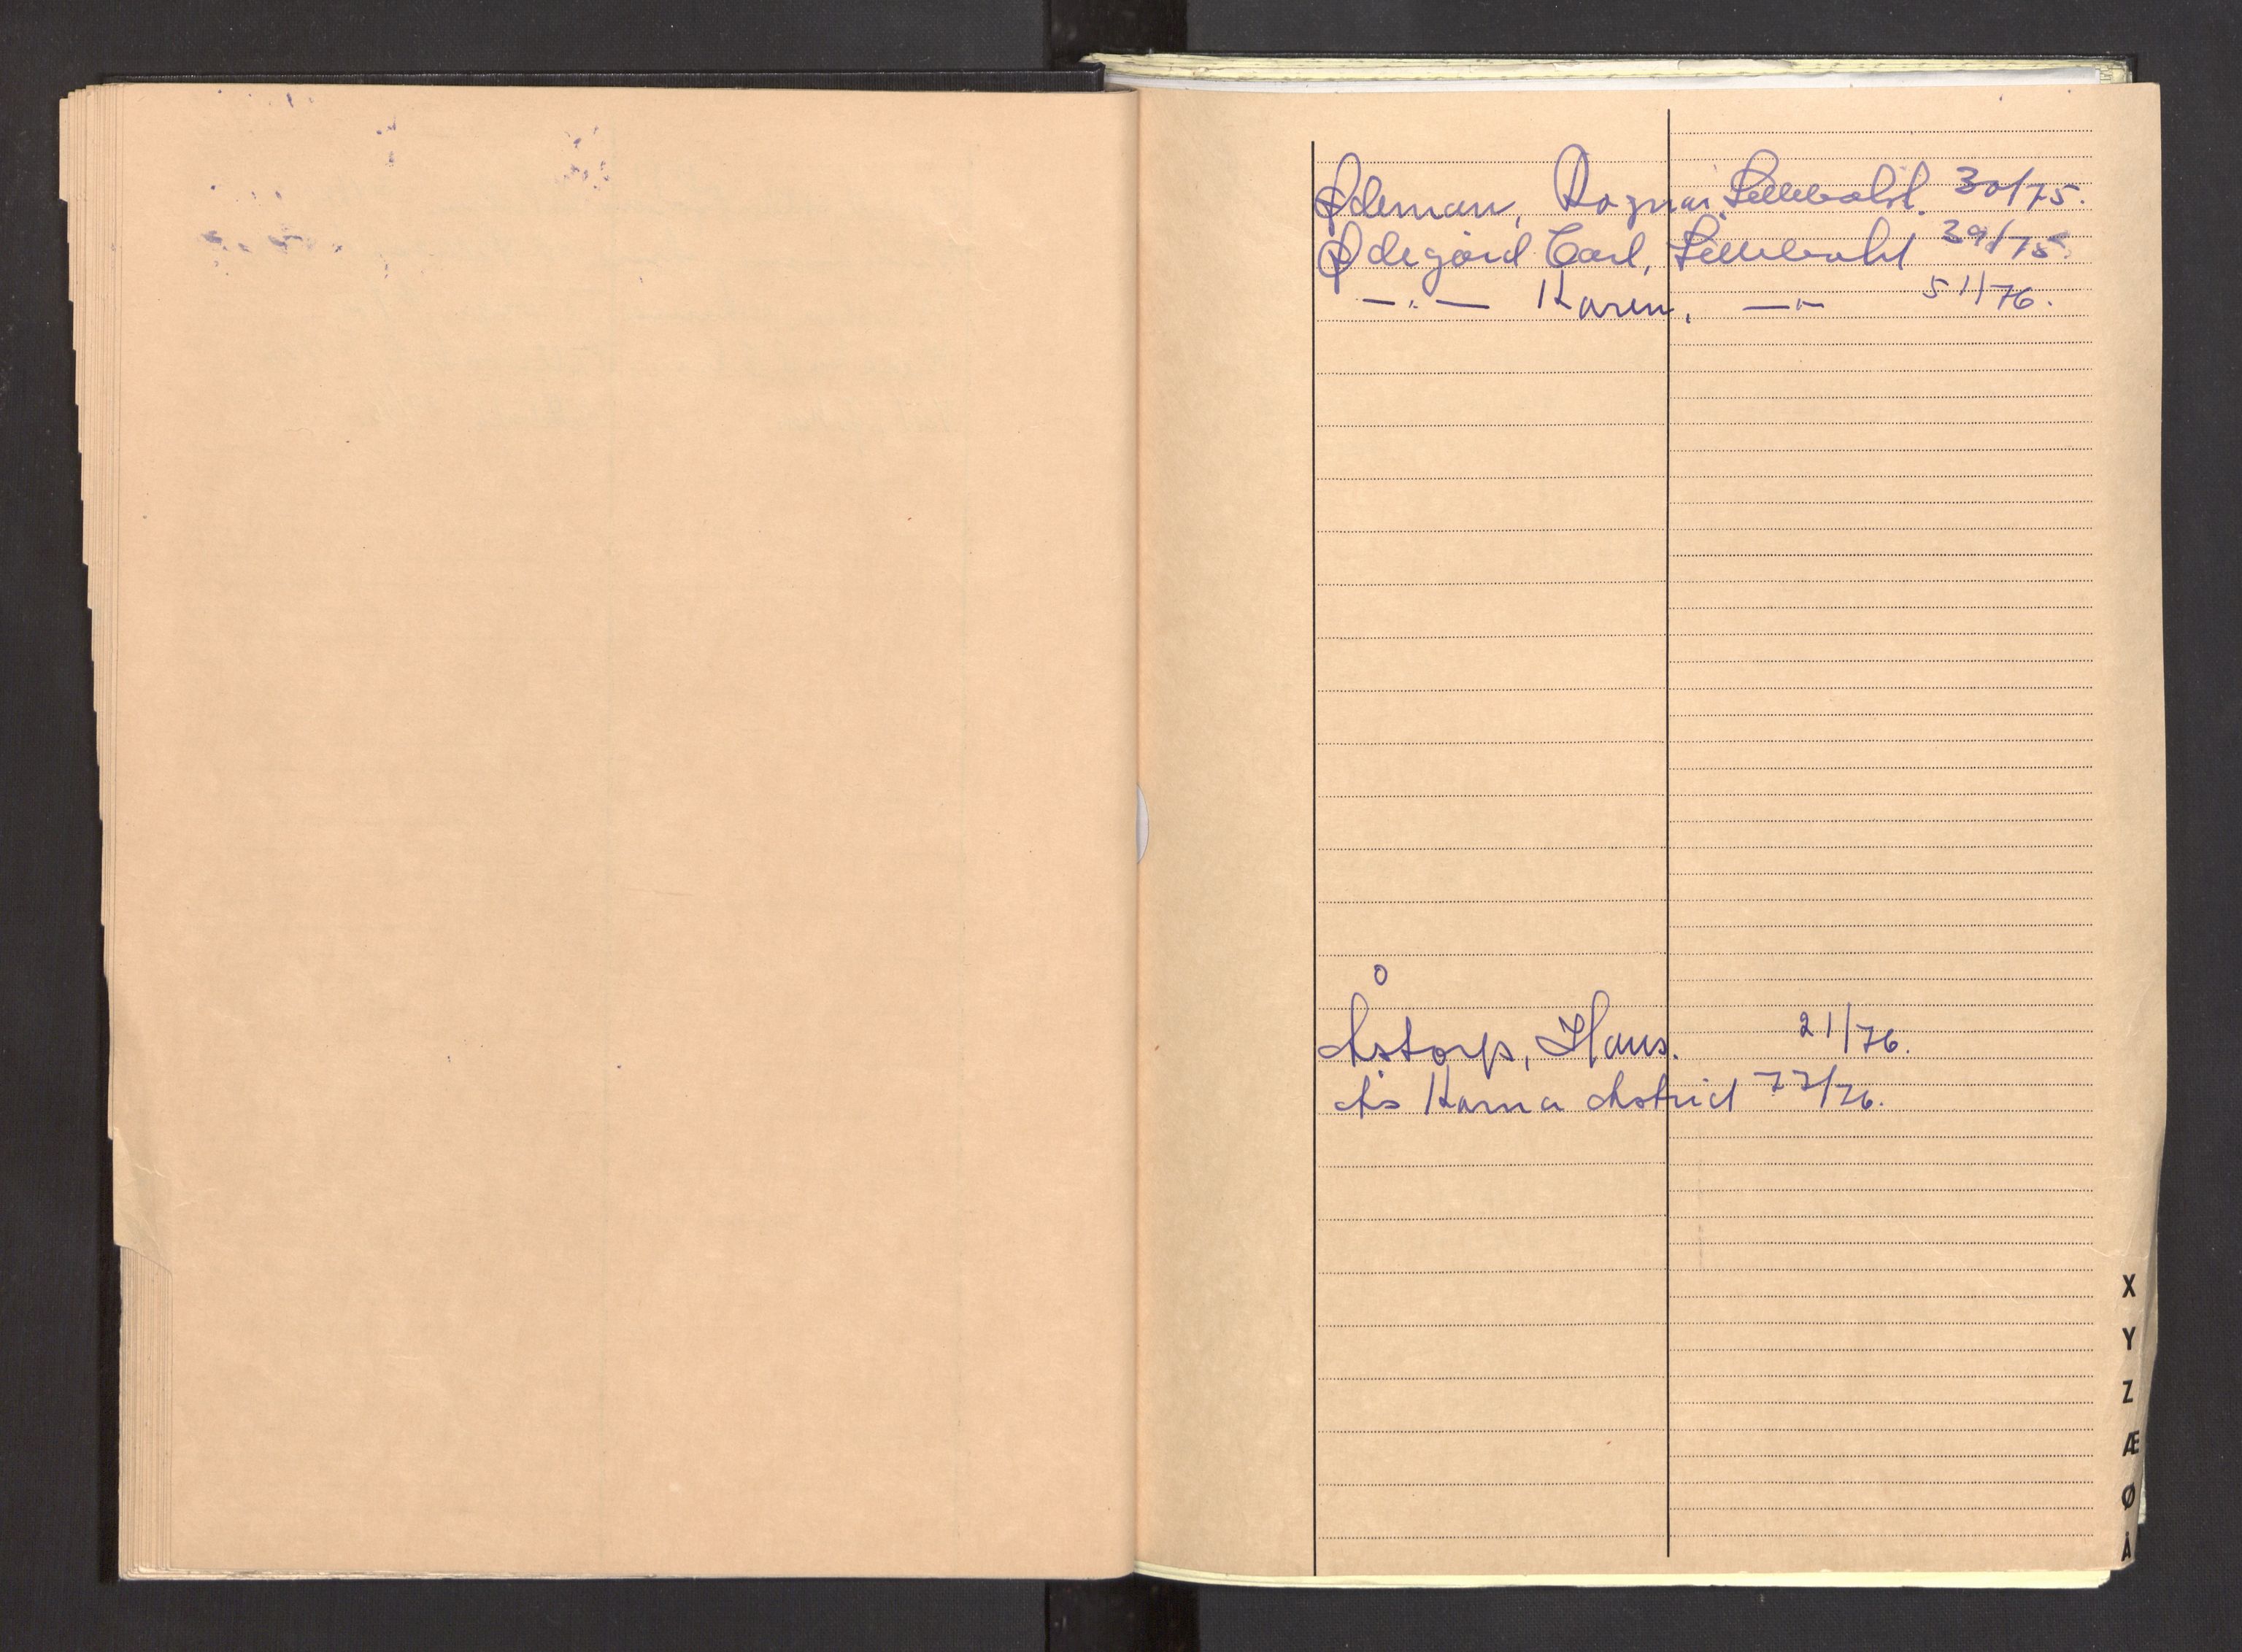 Ødeman, Ragnar. Lillebald. 30/75.
Ødegård Carl, Lillebald 39/75.
—"— Karen, —"— 51/76.
Åstorp, Hans. 21/76.
Ås Karna Astrid 77/76.
X
Y
Z
Æ
Ø
Å